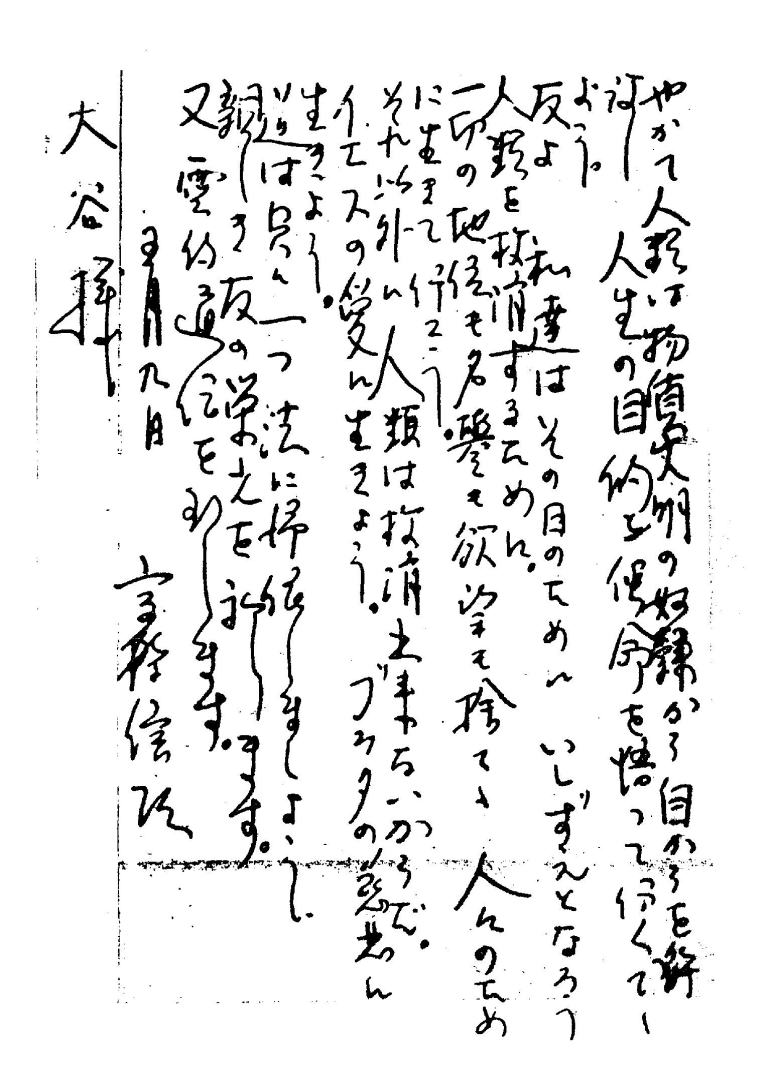 やがて人類は物質文明の奴隷から自からを解
放し 人生の目的と使命を悟って行くでし
よう。
友よ 私達はその日のために いしずえとなろう
人類を救済するために。
一切の地位も名誉も欲望も捨てて 人にのため
に生きて行こう。
それ以外に人類は救済出来ないからだ。
イエスの愛に生きよう。 ブッタの慈悲に
生きよう。
道は只一つ 法に帰依しましょう。
親しき友の栄光を祈します。
又 霊的通信を致します。
五月九日 高橋信次
大谷様